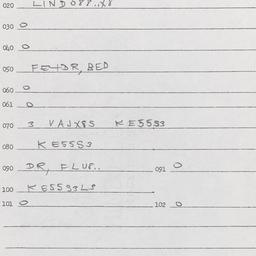 020 LIND088..X8
030 O
040 O
050 FEHDR, BED
060 O
061 O
070 3 VAJX8S KE5553
080 KE55S3
090 DR, FLUP.. 091 O
100 KE5593L8
101 O 102 O